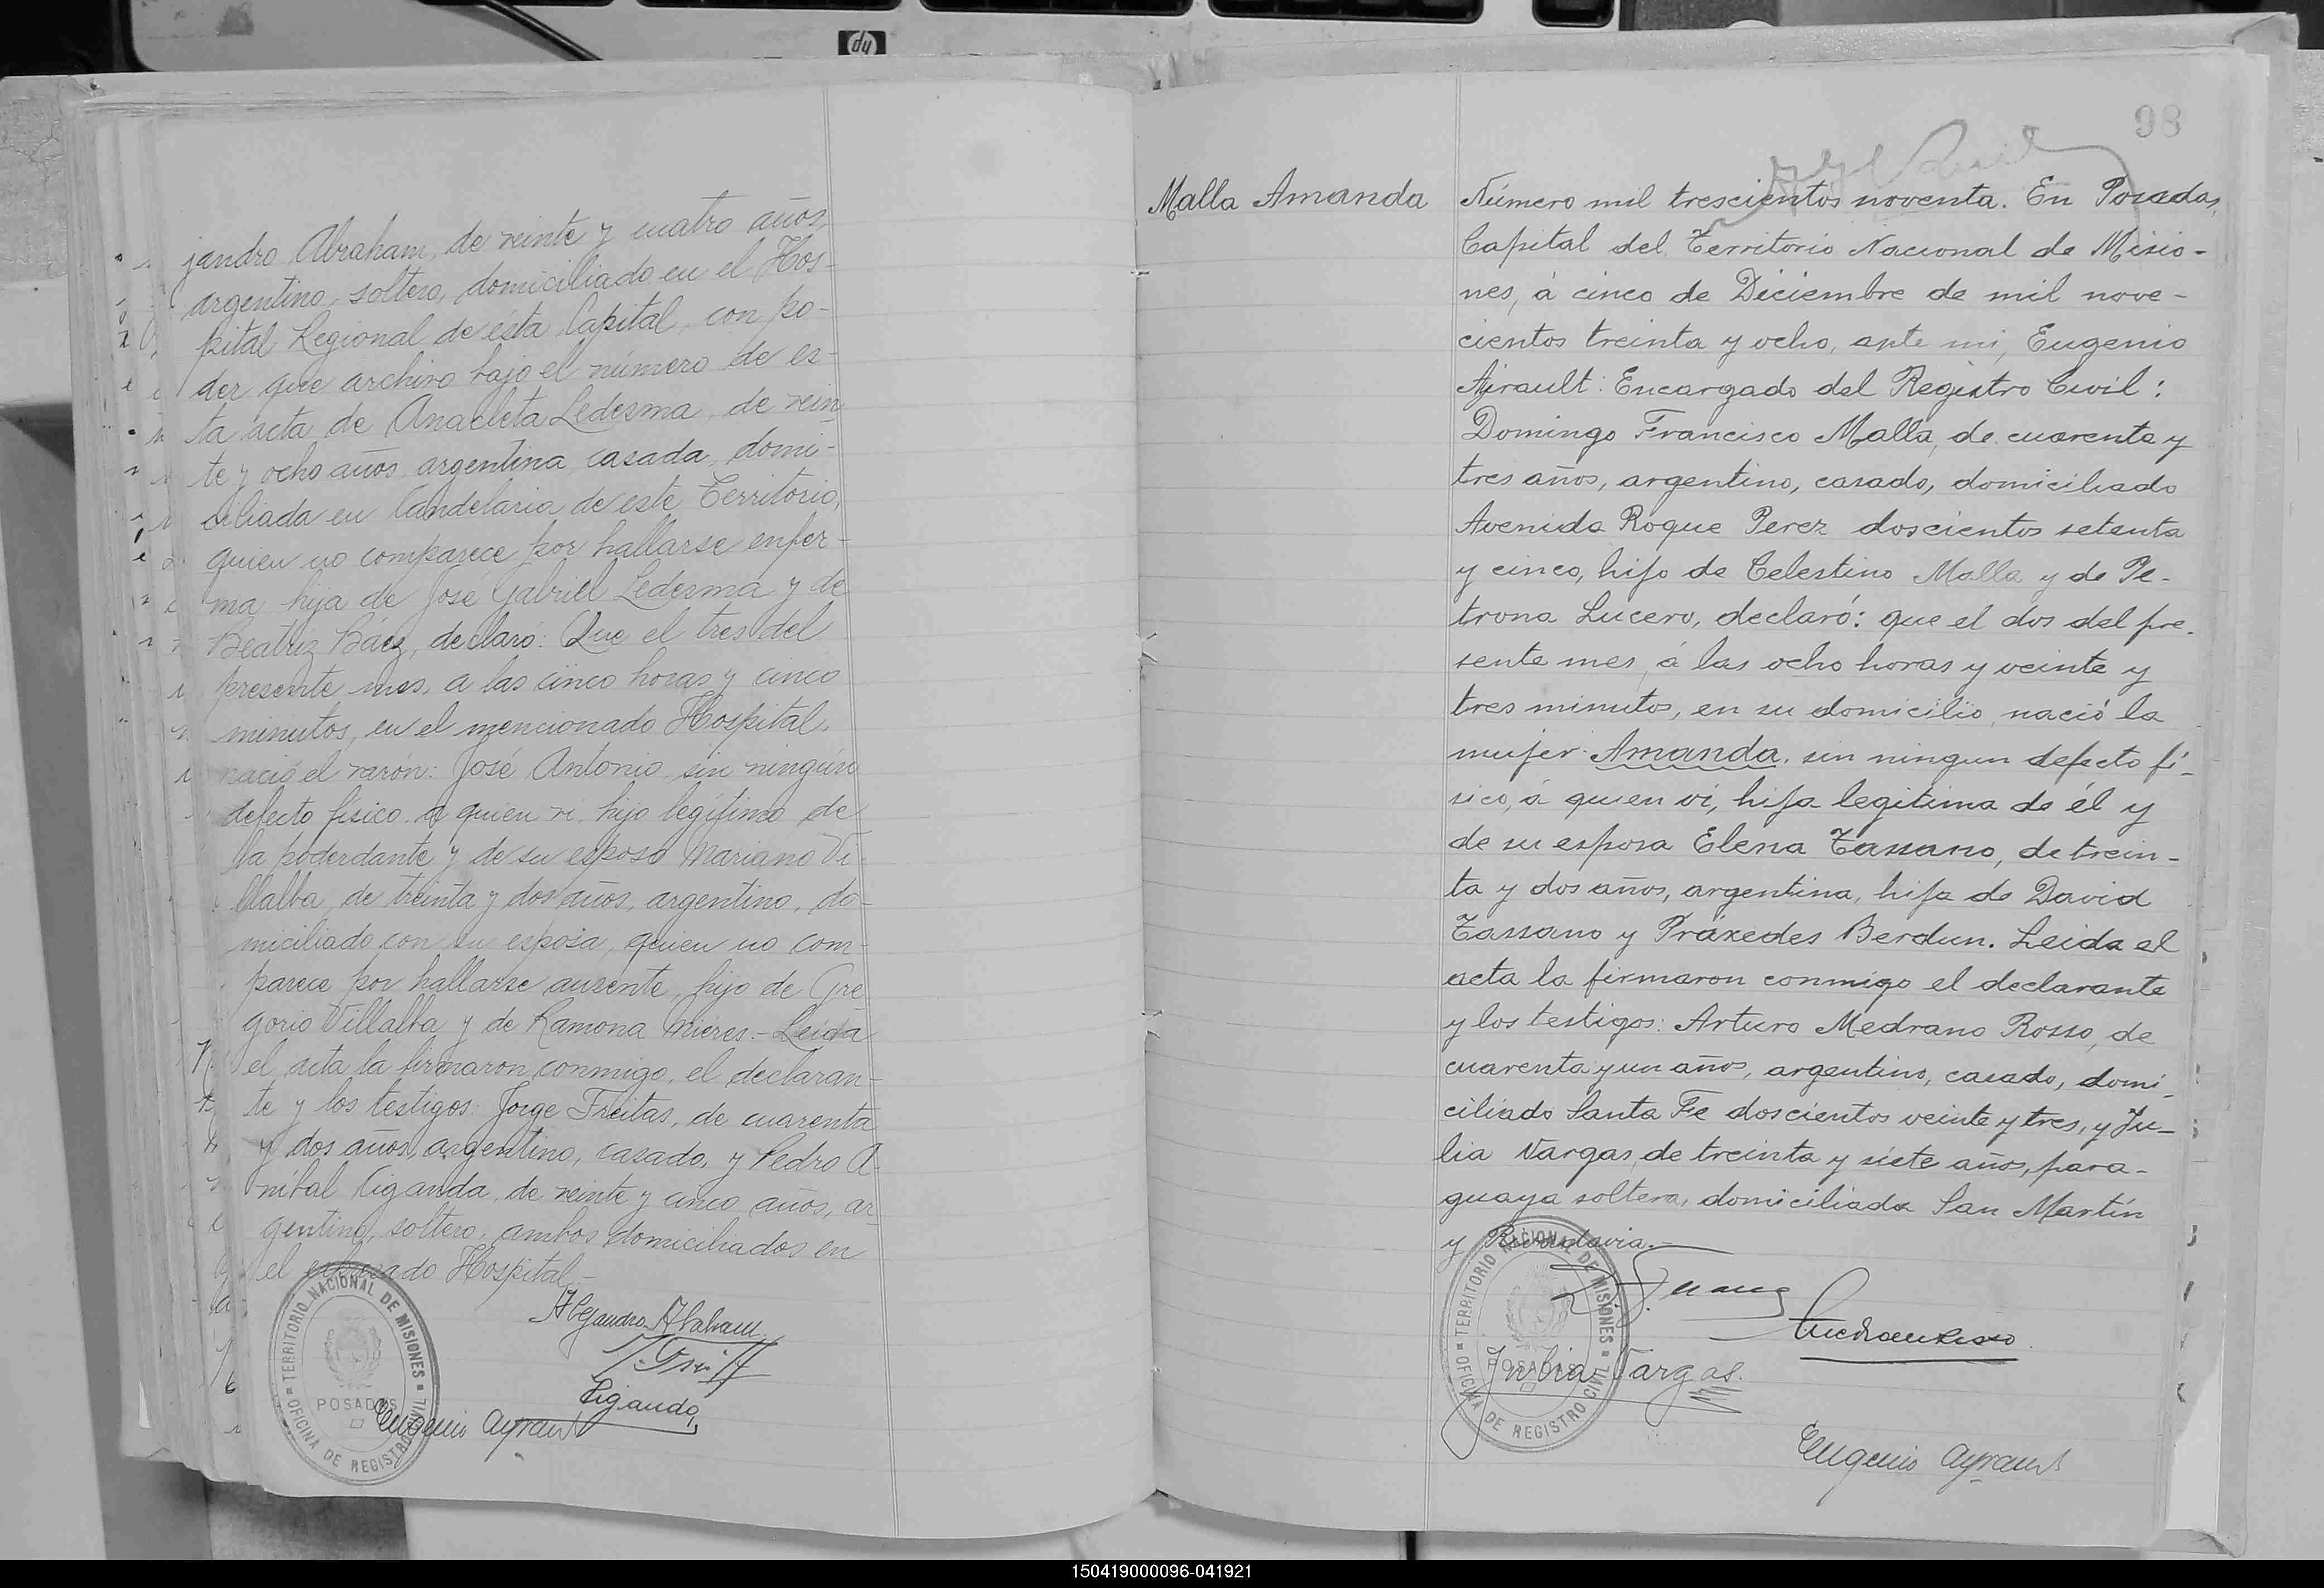 hp
jandro Abraham, de veinte y cuatro años,
argentino, soltero, domiciliado en el Hos-
pital Regional de ésta Capital, con po-
der que archivo bajo el número de es-
ta acta de Anacleta Ledesma, de vein
te y ocho años argentina casada, domi-
ciliada en Candelaria de este Territorio,
quien no comparece por hallarse enfer-
ma hija de José Gabriel Ledesma y de
Beatriz Báez, declaró: Que el tres del
presente mes, a las cinco horas y cinco
minutos, en el mencionado Hospital,
nació el varón: José Antonio sin ningún
defecto físico a quien vi, hijo legítimo de
la poderdante y de su esposo Mariano Vi-
llalba, de treinta y dos años, argentino, do-
miciliado con su esposa, quien no com-
parece por hallarse ausente, hijo de Gre
gorio Villalba y de Ramona Mieres.- Leída
el acta la firmaron conmigo, el declaran-
te y los testigos: Jorge Freitas, de cuarenta
y dos años, argentino, casado, y Pedro A-
nibal Ciganda, de veinte y cinco años, ar-
gentino, soltero, ambos domiciliados en
el expresado Hospital.-
Alejandro Abraham
Ciganda
Eugenio Ayrault
TERRITORIO NACIONAL DE MISIONES
POSADAS
OFICINA DE REGISTRO CIVIL
98
Malla Amanda
Número mil trescientos noventa. En Posadas,
Capital del Territorio Nacional de Misio-
nes, á cinco de Diciembre de mil nove-
cientos treinta y ocho, ante mi, Eugenio
Ayrault: Encargado del Registro Civil:
Domingo Francisco Malla, de cuarenta y
tres años, argentino, casado, domiciliado
Avenida Roque Perez doscientos setenta
y cinco, hijo de Celestino Malla y de Pe-
trona Lucero, declaró: que el dos del pre-
sente mes, á las ocho horas y veinte y
tres minutos, en su domicilio, nació la
mujer Amanda, sin ningun defecto fí-
sico, á quien vi, hija legitima de él y
de su esposa Elena Tassano, de trein-
ta y dos años, argentina, hija de David
Tassano y Práxedes Berdun. Leida el
acta la firmaron conmigo el declarante
y los testigos: Arturo Medrano Rosso, de
cuarenta y un años, argentino, casado, domi-
ciliado Santa Fe doscientos veinte y tres, y Ju-
lia Vargas, de treinta y siete años, para-
guaya soltera, domiciliada San Martín
y Rivadavia.-
Julia Vargas.
Eugenio Ayrault
TERRITORIO NACIONAL DE MISIONES
POSADAS
OFICINA DE REGISTRO CIVIL
150419000096-041921